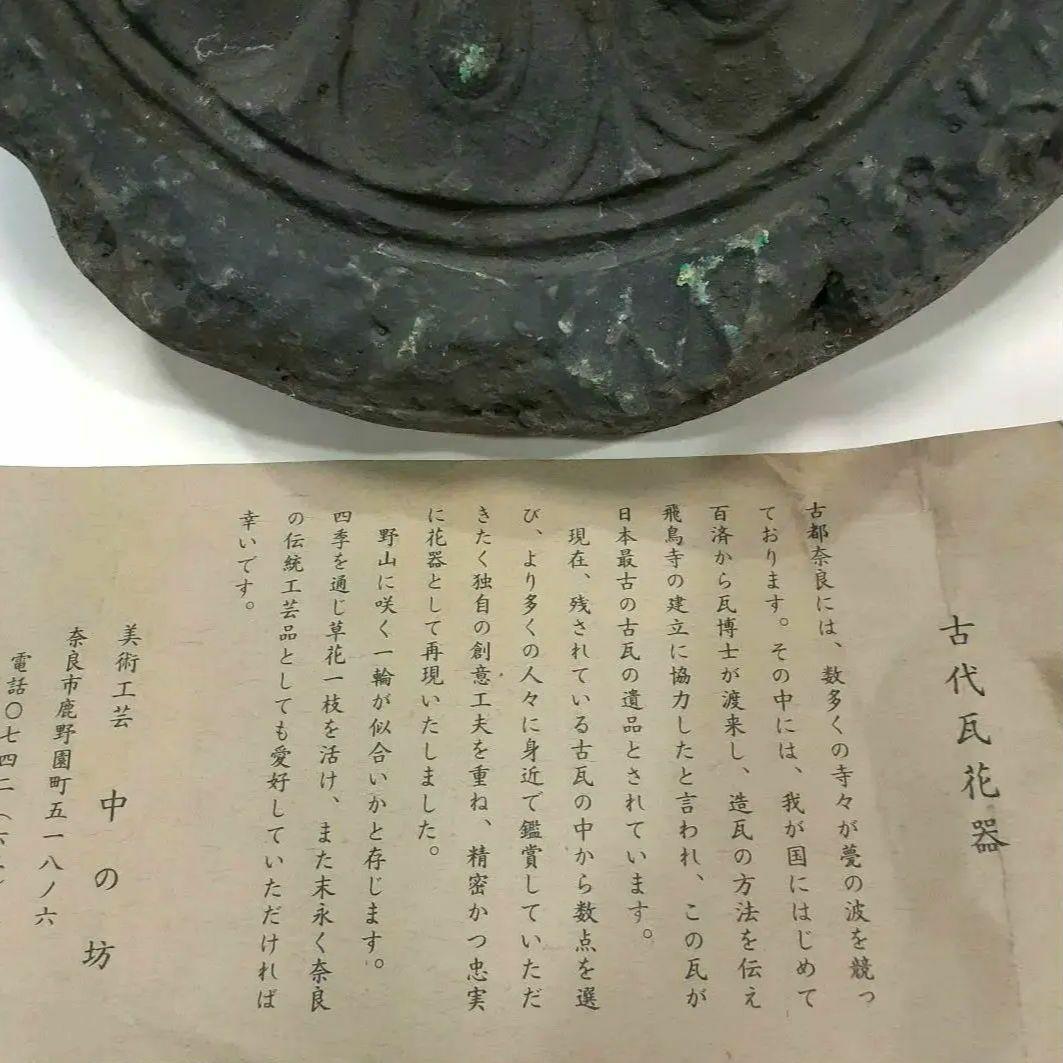 古代瓦花器
古都奈良には、数多くの寺々が甍の波を競っ
ております。その中には、我が国にはじめて
百済から瓦博士が渡来し、造瓦の方法を伝え
飛鳥寺の建立に協力したと言われ、この瓦が
日本最古の古瓦の遺品とされています。
現在、残されている古瓦の中から数点を選
び、より多くの人々に身近で鑑賞していただ
きたく独自の創意工夫を重ね、精密かつ忠実
に花器として再現いたしました。
野山に咲く一輪が似合いかと存じます。
四季を通じ草花一枝を活け、また末永く奈良
の伝統工芸品としても愛好していただければ
幸いです。
美術工芸 中の坊
奈良市鹿野園町五一八ノ六
電話〇七四二(六